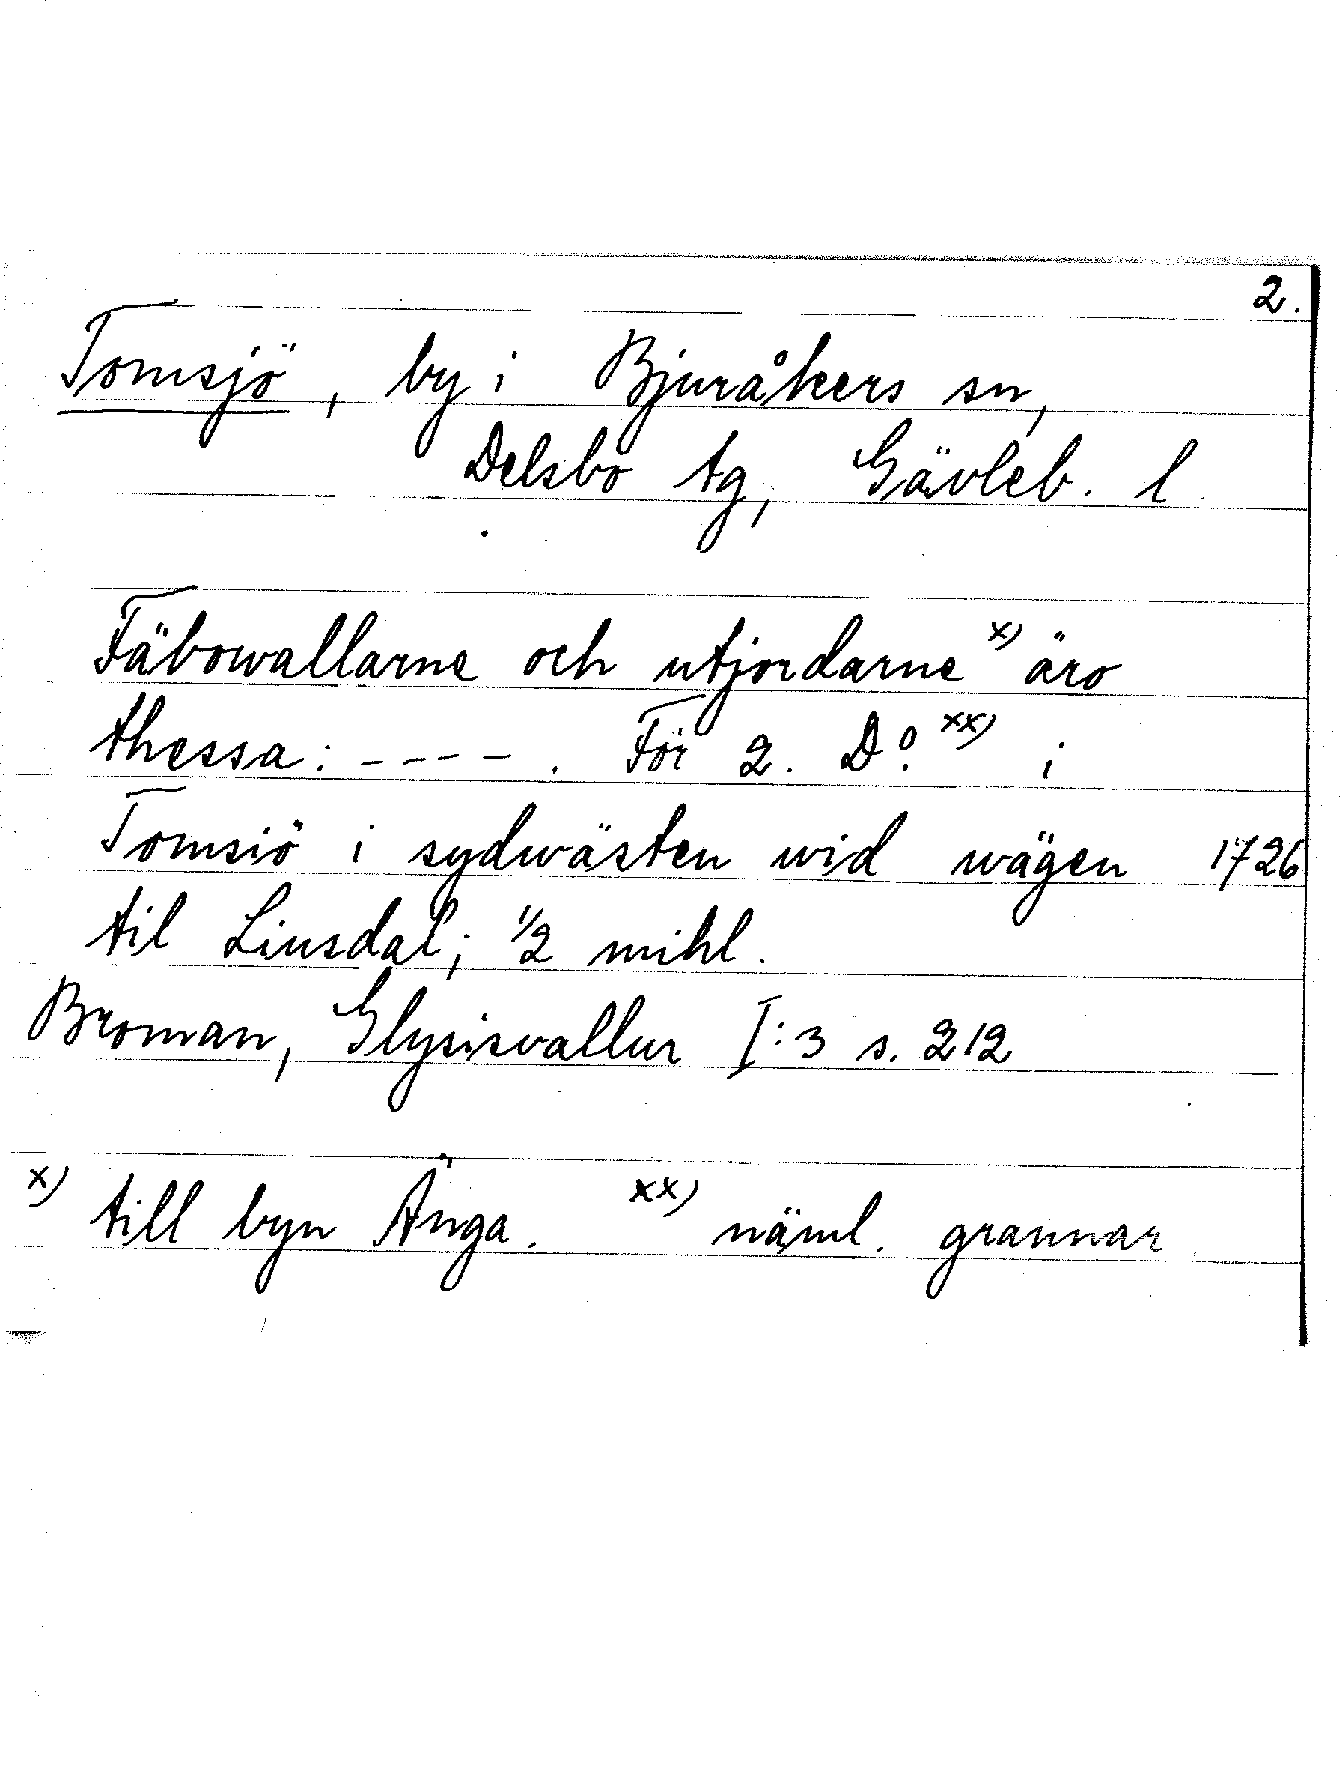 2.
Tomsjö, by i Bjuråkers sn,
Delsbo tg, Gävleb. l
Fäbowallarne och utjordarne x) äro
thessa: ----. För 2. Do. xx) i
Tomsiö i sydwästen wid wägen 1726
til Liusdal; 1/2 mihl.
Broman, Glysisvallur I:3 s. 212
x) till byn Änga. xx) näml. grannar